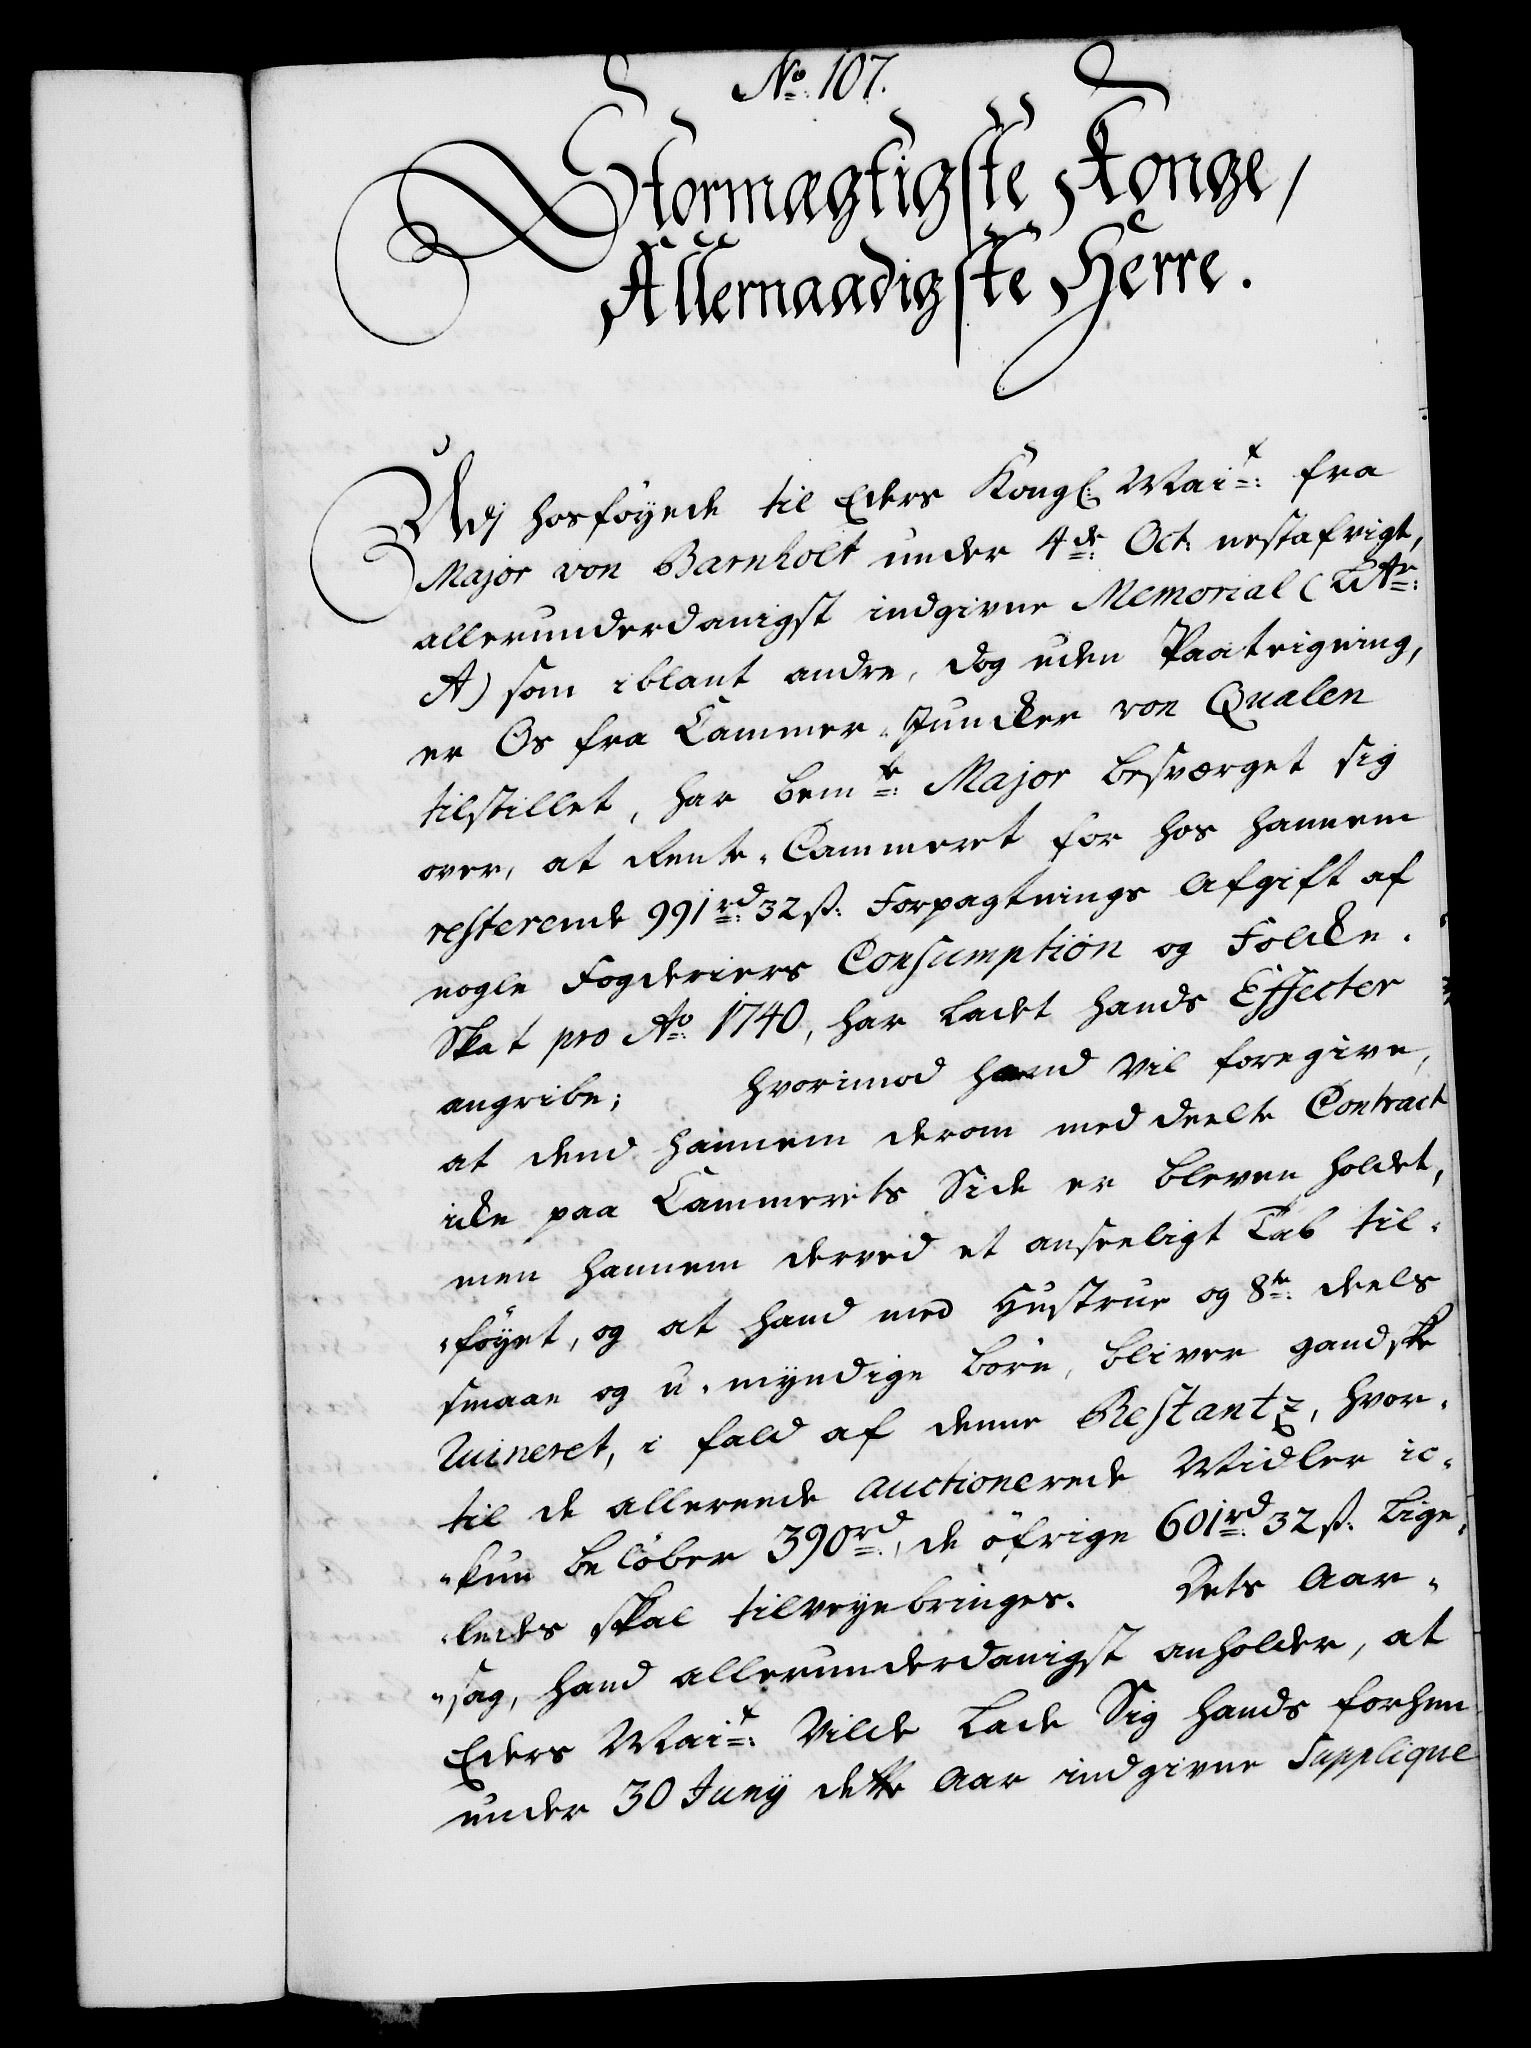 No: 107.
Stormægtigste Konge,
Allernaadigste Herre.
Udj hosföyede til Eders Kongl: Mai:t fra
Major von Barnholt under 4de: Oct: nestafvigt,
allerunderdanigst indgivne Memorial (Litr:
A) som iblant andre, dog uden Paateigning,
er Os fra Cammer-Juncker von Qualen
tilstillet, har bemte: Major besværget sig
over, at Rente-Cammeret for hos hannem
resterende 991rd: 32ß: Forpagtnings Afgift af
nogle Fogderiers Consumption og Folcke-
Skat pro Ao: 1740, har ladet hands Effecter
angribe; hvorimod hand vil foregive,
at dend hannem derom meddeelte Contract
icke paa Cammerets Side er bleven holdet,
men hannem derved et anseeligt Tab til-
föyet, og at hand med Hustrue og 8te: deels
smaae og u-myndige börn, bliver gandske
Ruineret, i fald af denne Restantz, hvor-
til de allereede auctionerede Midler ic-
kun belöber 390rd:, de öfrige 601rd: 32ß: lige-
ledes skal tilveyebringes. Dets Aar-
sag, hand allerunderdanigst anholder, at
Eders Mai:t Vilde lade Sig hands forhen
under 30 Juny dette Aar indgivne Supplique